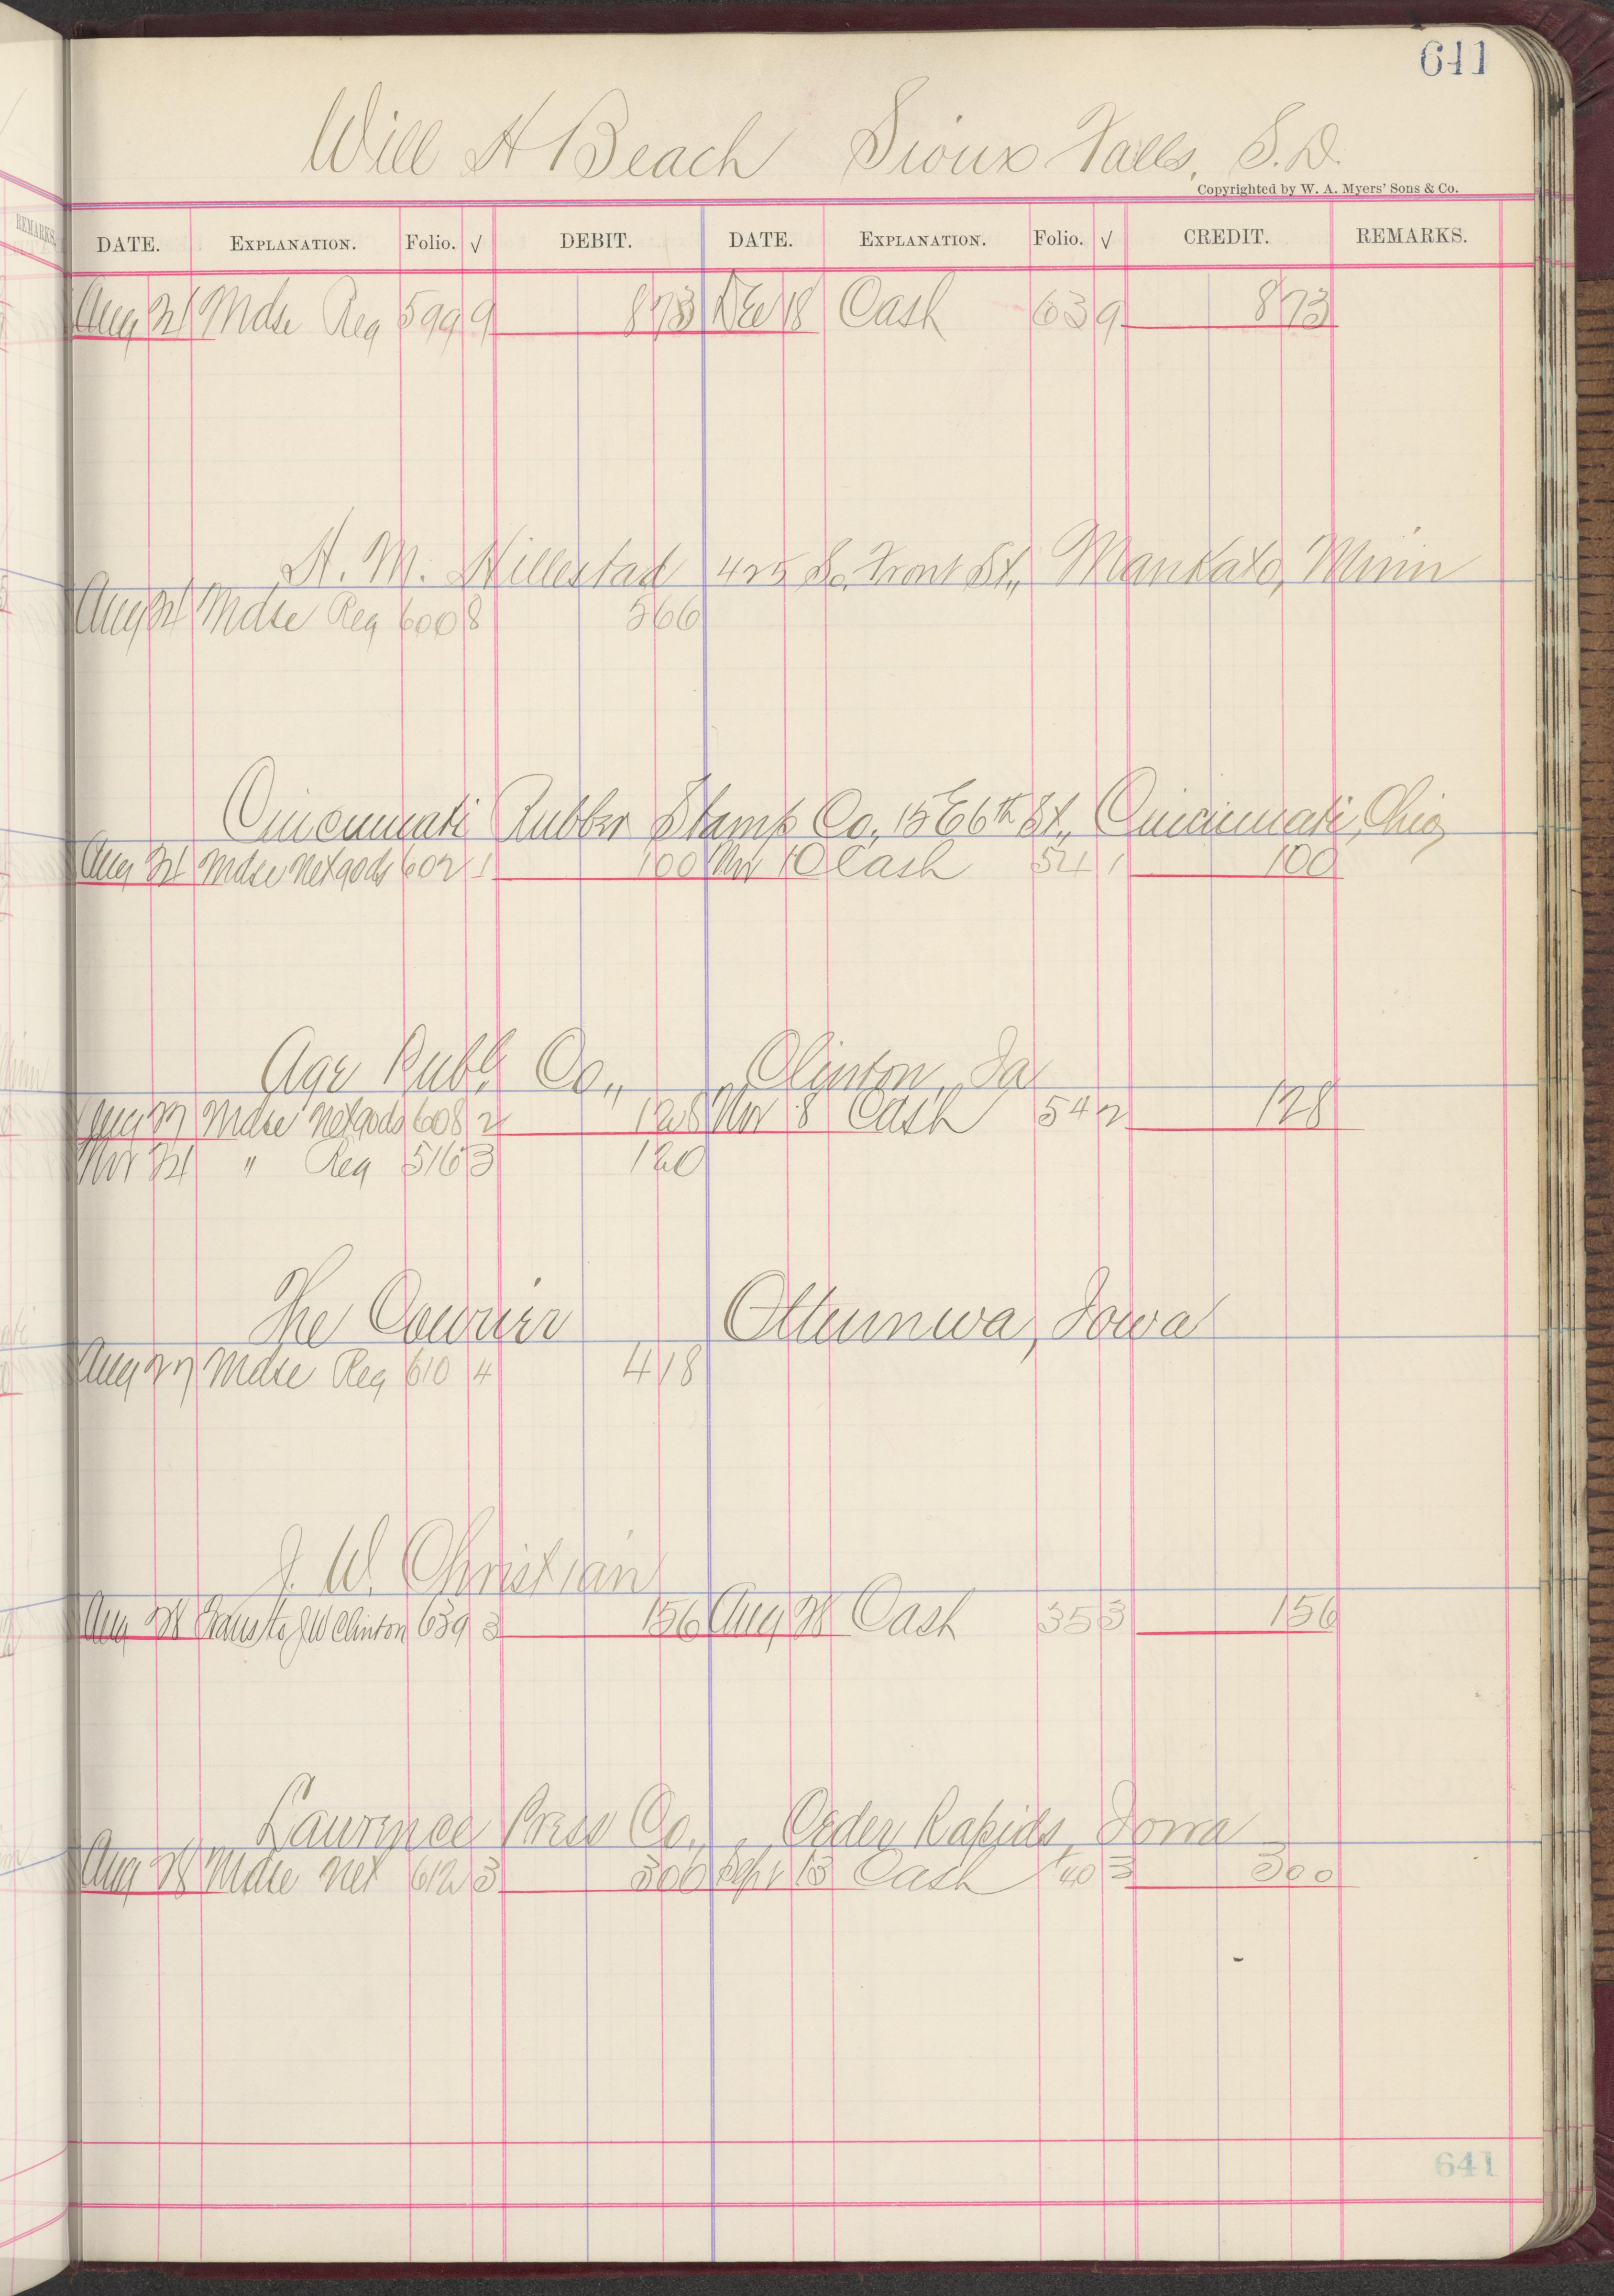 641
Will H Beach Sioux Falls, S.D.
Copyrighted by W. A. Myers' Sons & Co.
DATE. EXPLANATION. Folio. √ DEBIT. DATE. EXPLANATION. Folio. √ CREDIT. REMARKS.
Aug 21 Mdse Reg 599 9 8 73 Dec 18 Cash 63 9 8 73
H. M. Hillestad 425 So. Front St., Mankato, Minn
Aug 21 Mdse Reg 600 8 5 66
Cincinnati Rubber Stamp Co., 15 E 6th St., Cincinnati, Ohio
Aug 21 Mdse Net goods 602 1 1 00 Nov 10 Cash 54 1 1 00
Age Publ. Co., Clinton, Ia
Aug 27 Mdse Net goods 608 2 1 28 Nov 8 Cash 54 2 1 28
Nov 21 " Reg 516 3 1 20
The Courier Ottumwa, Iowa
Aug 27 Mdse Reg 610 4 4 18
J. W. Christian
Aug 28 Trans to J W Clinton 639 3 1 56 Aug 28 Cash 35 3 1 56
Lawrence Press Co., Ceder Rapids, Iowa
Aug 28 Mdse Net 612 3 3 00 Sept 13 Cash 40 3 3 00
641